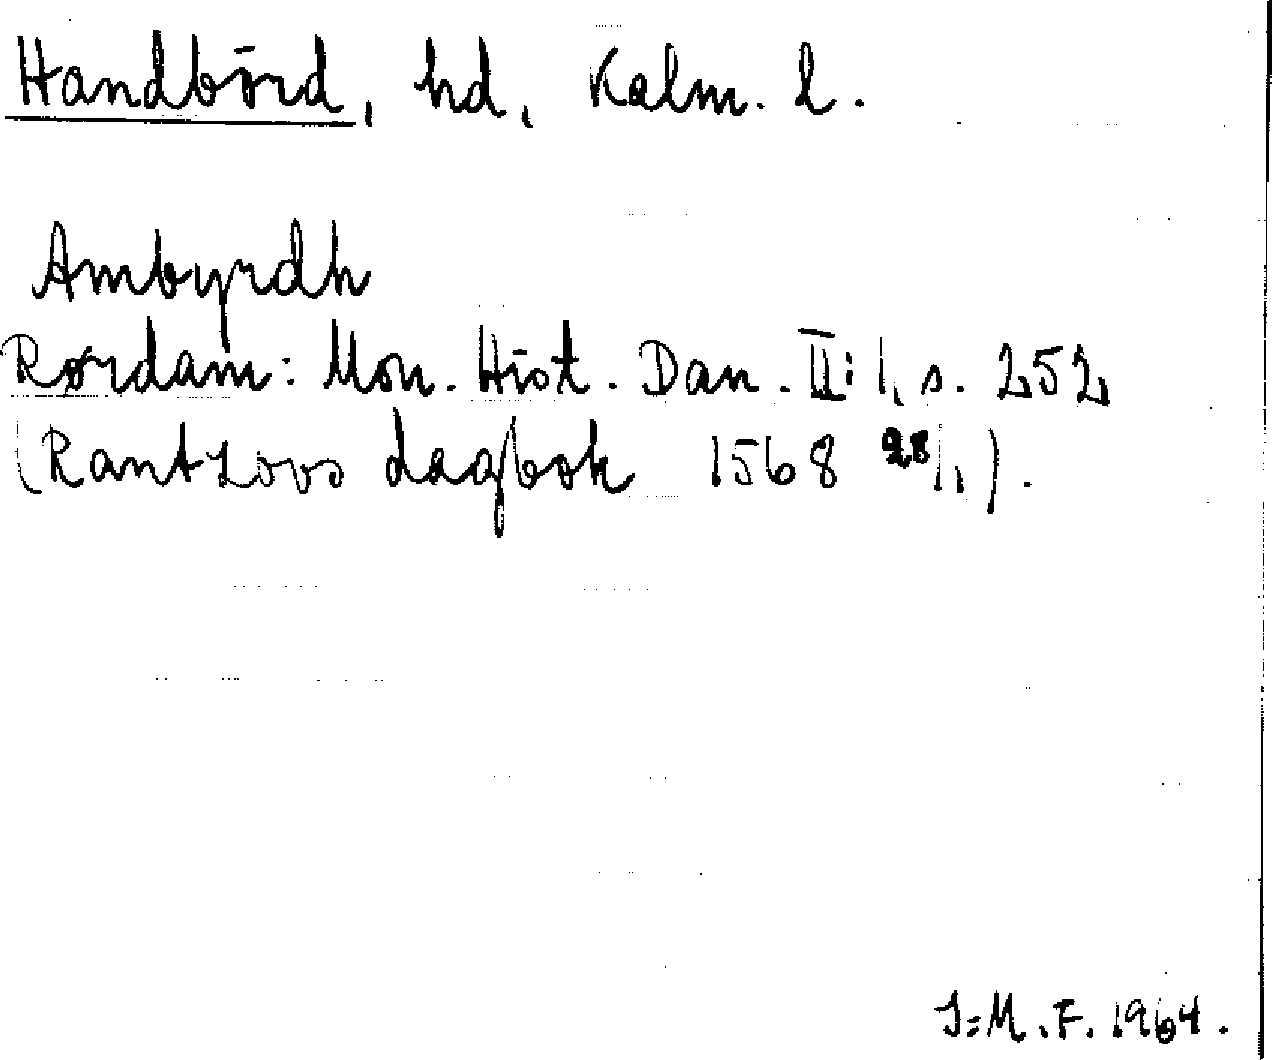 Handbörd, hd, Kalm. l.
Ambyrdh
Rørdam: Mon. Hist. Dan. II: 1, s. 252
(Rantzovs dagbok 1568 28/1).
J=M. F. 1964.